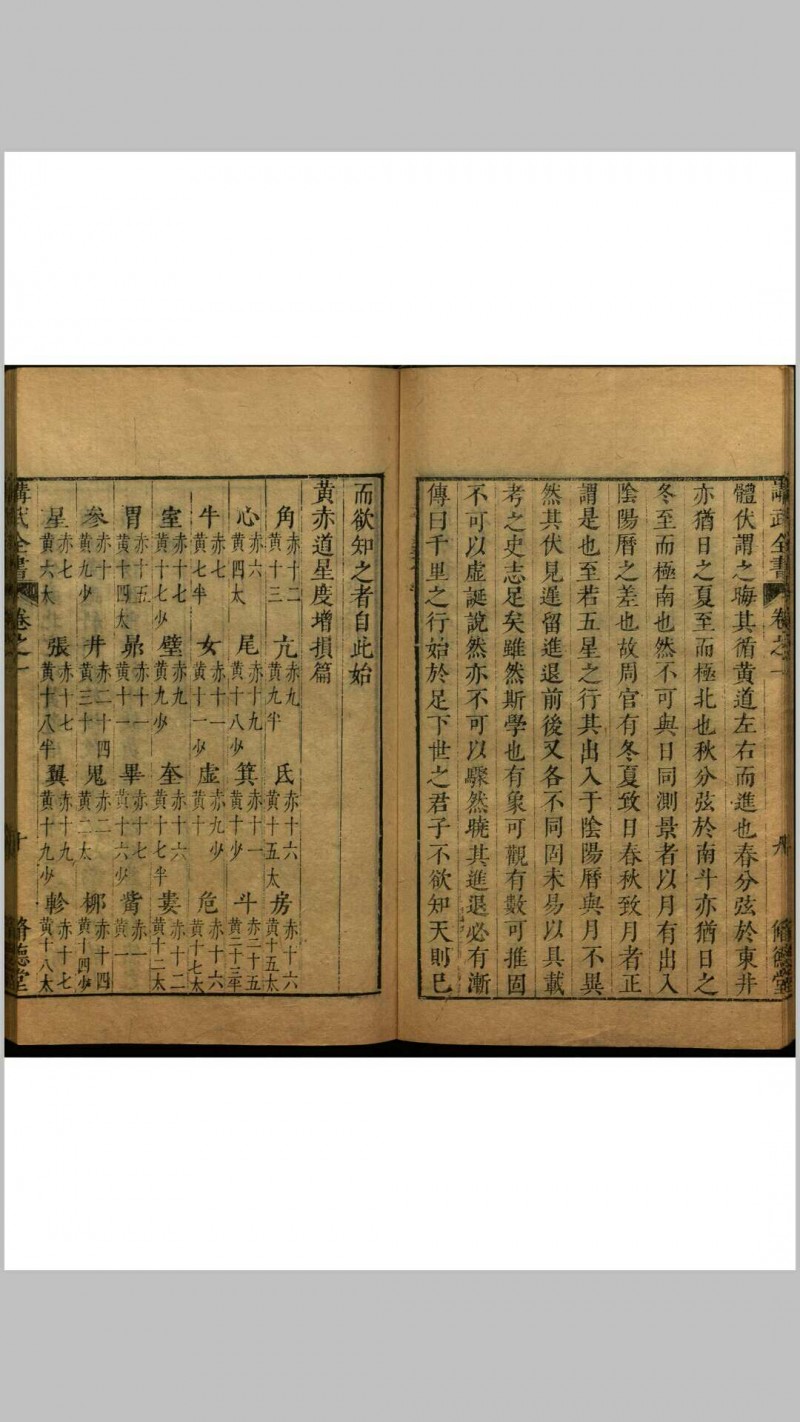 講武全書 卷之一 九 脩德堂
體伏謂之晦其循黃道左右而進也春分弦於東井
亦猶日之夏至而極北也秋分弦於南斗亦猶日之
冬至而極南也然不可與日同測景者以月有出入
陰陽曆之差也故周官有冬夏致日春秋致月者正
謂是也至若五星之行其出入于陰陽曆與月不異
然其伏見遲留進退前後又各不同固未易以具載
考之史志足矣雖然斯學也有象可觀有數可推固
不可以虛誕說然亦不可以驟然曉其進退必有漸
傳曰千里之行始於足下世之君子不欲知天則已
而欲知之者自此始
黃赤道星度增損篇
角赤十二黃十三 亢赤九黃九半 氐赤十六黃十五太 房赤十六黃十五太
心赤六黃四太 尾赤十九黃十八少 箕赤十一黃十少 斗赤二十五黃二十三半
牛赤七黃七半 女赤十一黃十一少 虛赤九少黃十 危赤十六黃十七太
室赤十七黃十七少 壁赤九黃九少 奎赤十六黃十七半 婁赤十二黃十二太
胃赤十五黃十四太 昴赤十一黃十一 畢赤十七黃十六少 觜赤一黃一
參赤十黃九少 井赤二十四黃三十 鬼赤二黃二太 柳赤十四黃十四少
星赤七黃六太 張赤十七黃十八半 翼赤十九黃十九少 軫赤十七黃十八太
講武全書 卷之一 十 脩德堂